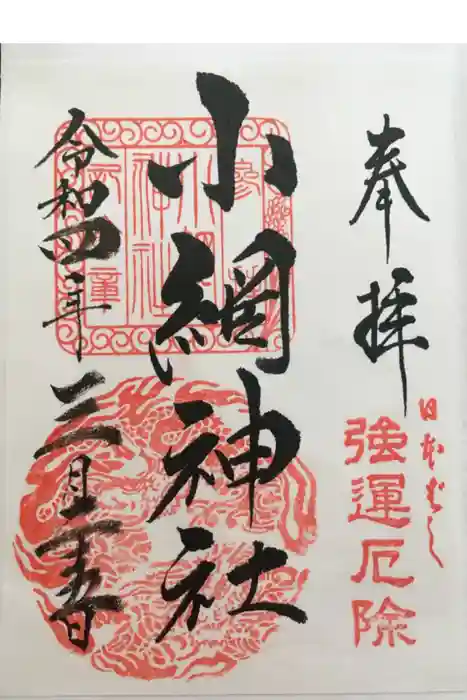 奉拝
日本ばし
強運厄除
小網神社
令和四年三月十五日